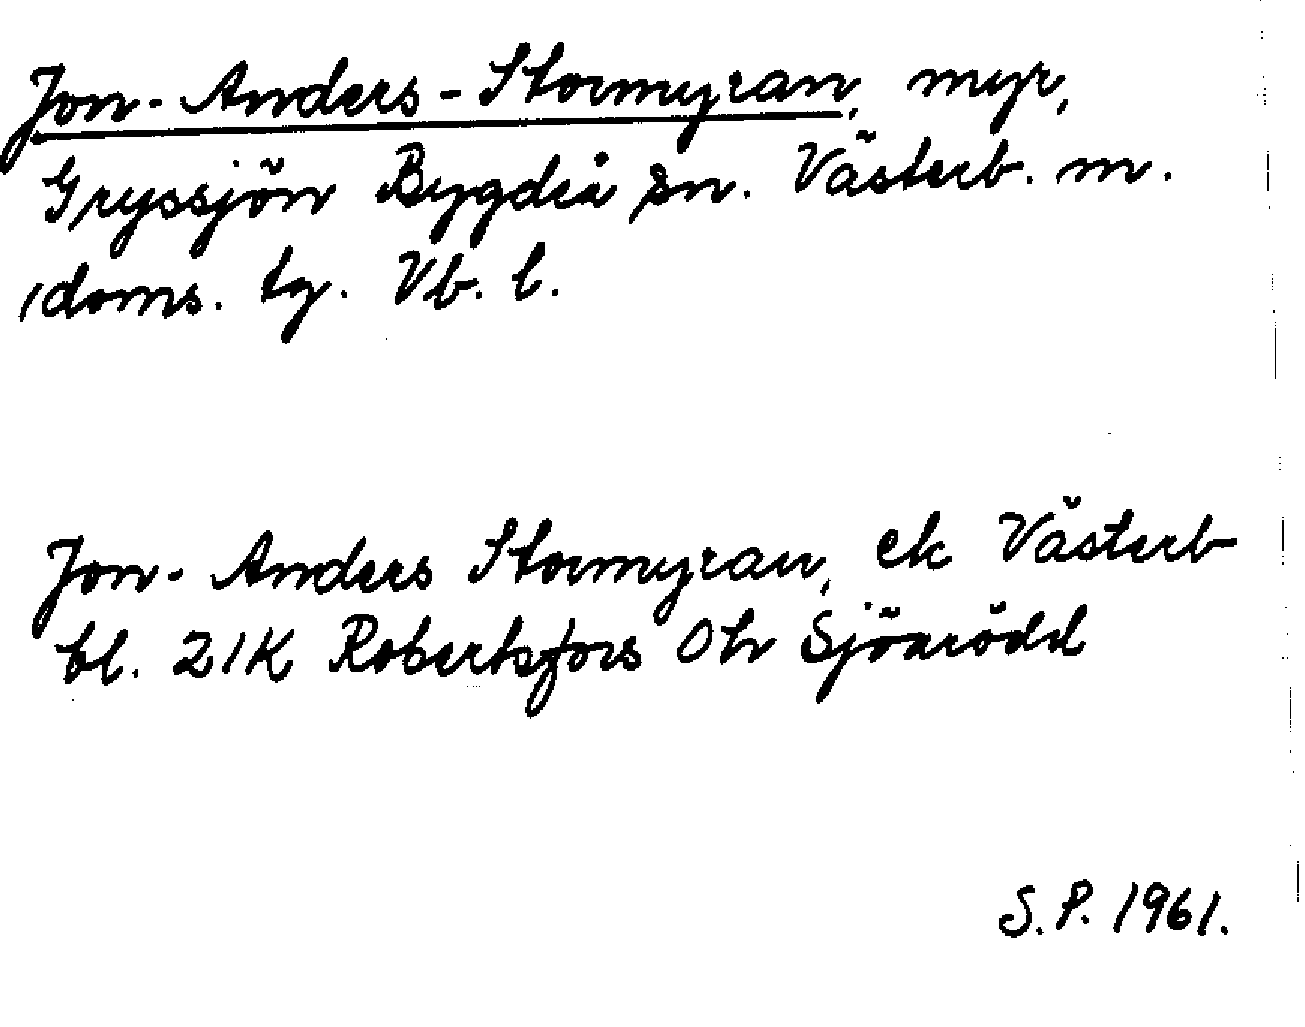 Jon-Anders-Stormyran, myr,
Gryssjön Bygdeå sn. Västerb. m.
doms. tg. Vb. l.
Jon-Anders Stormyran, ek Västerb
bl. 21K Robertsfors
S.P. 1961.